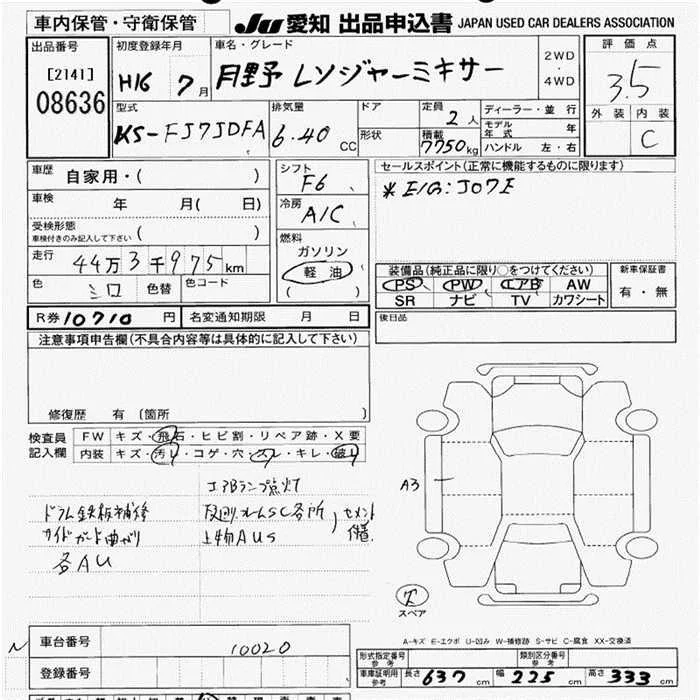 車内保管・守衛保管
JU 愛知 出品申込書 JAPAN USED CAR DEALERS ASSOCIATION
出品番号
[2141]
08636
初度登録年月
H16 7月
車名・グレード
日野 レンジャーミキサー
2WD
・
4WD
評価点
3.5
外装 内装
C
型式
KS-FJ7JDFA
排気量
6.40 CC
ドア
形状
定員
2人
積載
7750kg
ディーラー・並行
モデル年式 年
ハンドル 左・右
車歴
自家用・( )
車検 年 月( 日)
受検形態
車検付きのみ記入して下さい ( )
走行
44万3千975km
色 シロ 色替 色コード
シフト
F6
冷房
A/C
燃料
ガソリン
軽油
( )
セールスポイント(正常に機能するものに限ります)
※E/G:J07E
装備品(純正品に限り○をつけてください)
PS PW エアB AW
SR ナビ TV カワシート
新車保証書
有・無
R券 10710 円 名変通知期限 月 日
後日品
注意事項申告欄(不具合内容等は具体的に記入して下さい)
修復歴 有(箇所 )
検査員記入欄
FW キズ・飛石・ヒビ割・リペア跡・X要
内装 キズ・汚レ・コゲ・穴・スレ・キレ・破レ
エアBランプ点灯
ドラム鉄板補修
サイドガード曲がり
各AU
各所
上物AUs
セメント付着
A3
スペア
A-キズ E-エクボ U-凹み W-補修跡 S-サビ C-腐食 XX-交換済
N
車台番号 10020
登録番号
形式指定番号 参考
類別区分番号 参考
車庫証明用 参考 長さ 637cm 幅 225cm 高さ 333cm